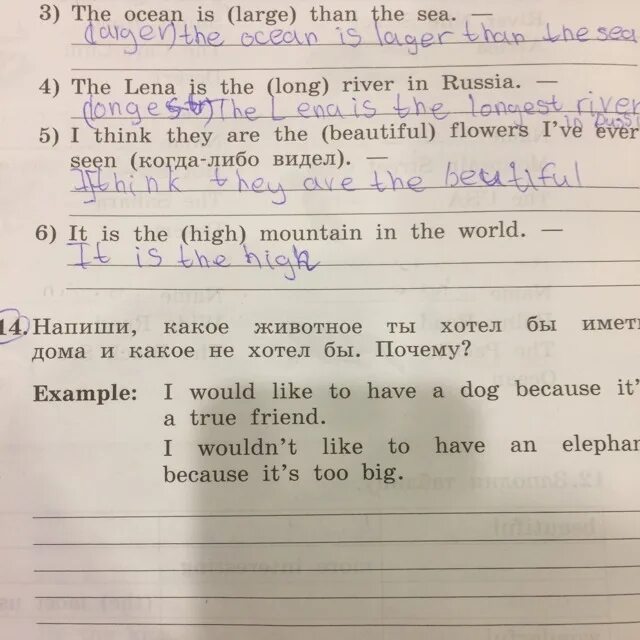 3) The ocean is (large) than the sea. —
(larger) the ocean is lager than the sea
4) The Lena is the (long) river in Russia. —
(longest) The Lena is the longest river
in Russi
5) I think they are the (beautiful) flowers I've ever
seen (когда-либо видел). —
I think they are the beutiful
6) It is the (high) mountain in the world. —
It is the high
14. Напиши, какое животное ты хотел бы имет
дома и какое не хотел бы. Почему?
Example: I would like to have a dog because it'
a true friend.
I wouldn't like to have an elephan
because it's too big.